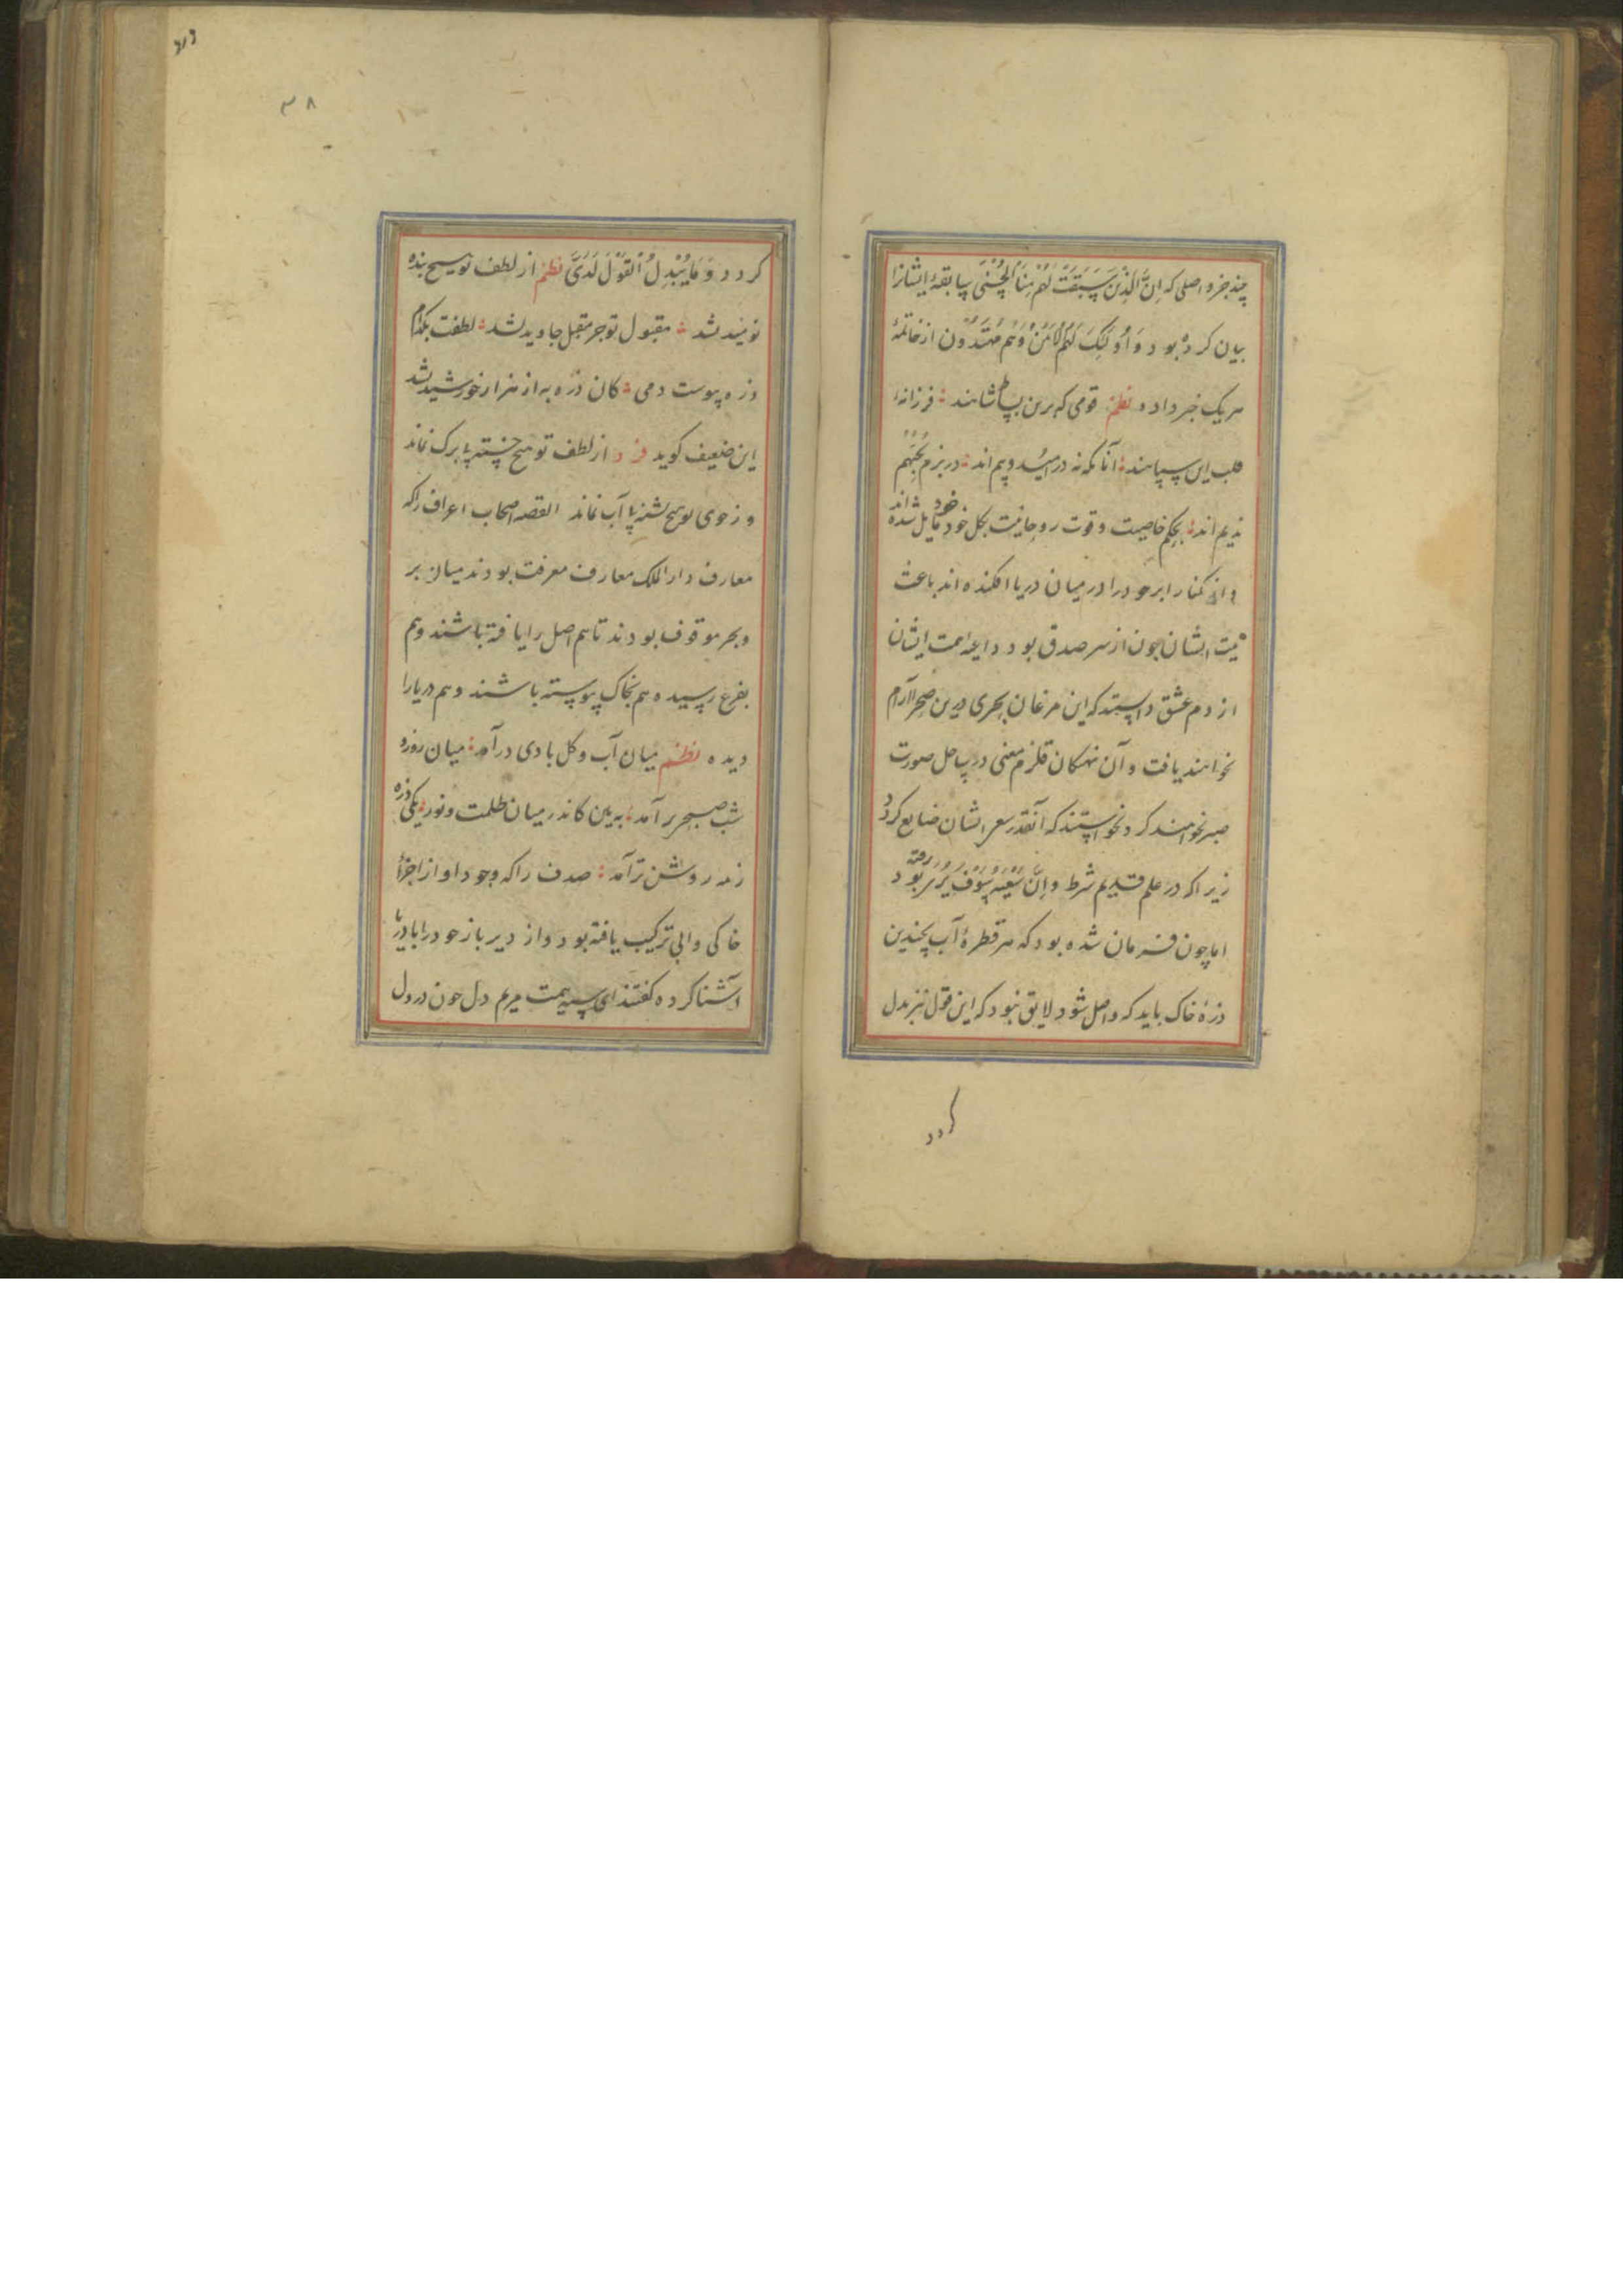 چند جزو اصلی که اِنَّ الَّذینَ سَبَقَتْ لَهُم مِنَّا الْحُسْنَی سابقهٔ ایشانرا
بیان کرده بود وَ اُولٰئِکَ لَهُمُ الْاَمْنُ وَهُم مُهْتَدُون از خاتمهٔ
هریک خبر داده نظم قومی که برین بساط شاهند فرزانهٔ
قلب این سپاهند آنانکه نه در امید و بیم اند در بزم یُحِبُّهُم
ندیم اند بحکم خاصیت و قوت روحانیت بکل خود مایل شده اند
و از کنار ابر خود را در میان دریا افکنده اند باعث
نیت ایشان چون از سر صدق بود داعیه همت ایشان
از دم عشق دانستند که این مرغان بحری درین صحرا آرام
نخواهند یافت و آن نهنکان قلزم معنی در ساحل صورت
صبر نخواهند کرد نخواستند که آنقدر سعی ایشان ضایع کردد
زیرا که در علم قدیم شرط وَاِنَّ سَعْیَهُ سَوْفَ یُرَی رفته بود
اما چون فرمان شده بود که هر قطرهٔ آب بچندین
ذرهٔ خاک باید که واصل شود لایق نبود که این قول نیز بدل
کردد
۳۸
کردد وَ مَا یُبَدَّلُ الْقَوْلُ لَدَیَّ نظم از لطف تو هیچ بنده
نومید نشد مقبول تو جز مقبل جاوید نشد لطفت بکدام
ذره پیوست دمی کان ذره به از هزار خورشید نشد
این ضعیف کوید فرد از لطف تو هیچ خسته بابرک نماند
وز جوی تو هیچ تشنه بآب نماند القصه اصحاب اعراف را که
معارف دار الملک معارف معرفت بودند میان بر
و بحر موقوف بودند تا هم اصل را یافته باشند و هم
بفرع رسیده هم بخاک پیوسته باشند و هم دریا را
دیده نظم میان آب و کل بادی درآمد میان روز و
شب صبحی برآمد ببین کاندر میان ظلمت و نور یکی ذره
زمه روشن تر آمد صدف را که وجود او از اجزأ
خاکی و آبی ترکیب یافته بود و از دیر باز خود را با دریا
آشنا کرده کفتند ای سینه همت مریم دل چون در دل